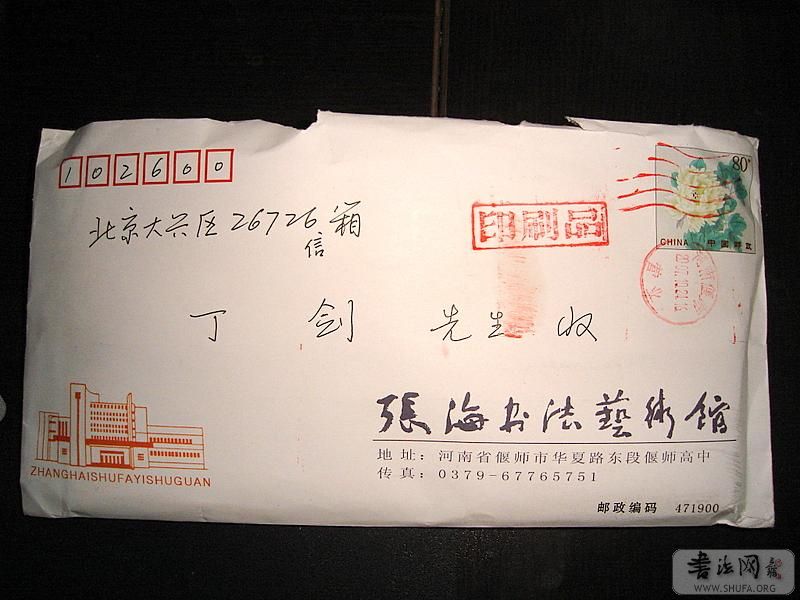 102600
80分
北京大兴区26726信箱
印刷品
CHINA 中国邮政
丁剑 先生 收
張海书法藝術館
ZHANGHAISHUFAYISHUGUAN
地址：河南省偃师市华夏路东段偃师高中
传真：0379-67765751
邮政编码 471900
書法网
WWW.SHUFA.ORG